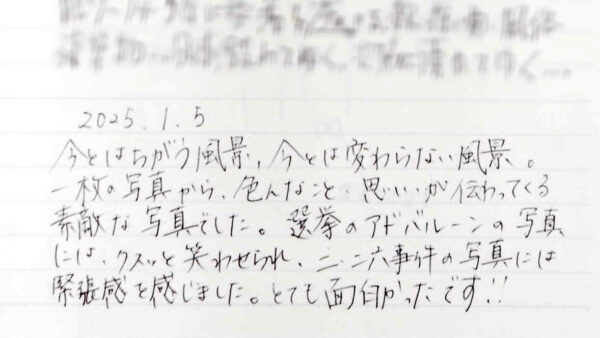 2025.1.5
今とはちがう風景，今とは変わらない風景。
一枚の写真から、色んなこと・思いが伝わってくる
素敵な写真でした。選挙のアドバルーンの写真
には、クスッと笑わせられ、二・二六事件の写真には
緊張感を感じました。とても面白かったです!!